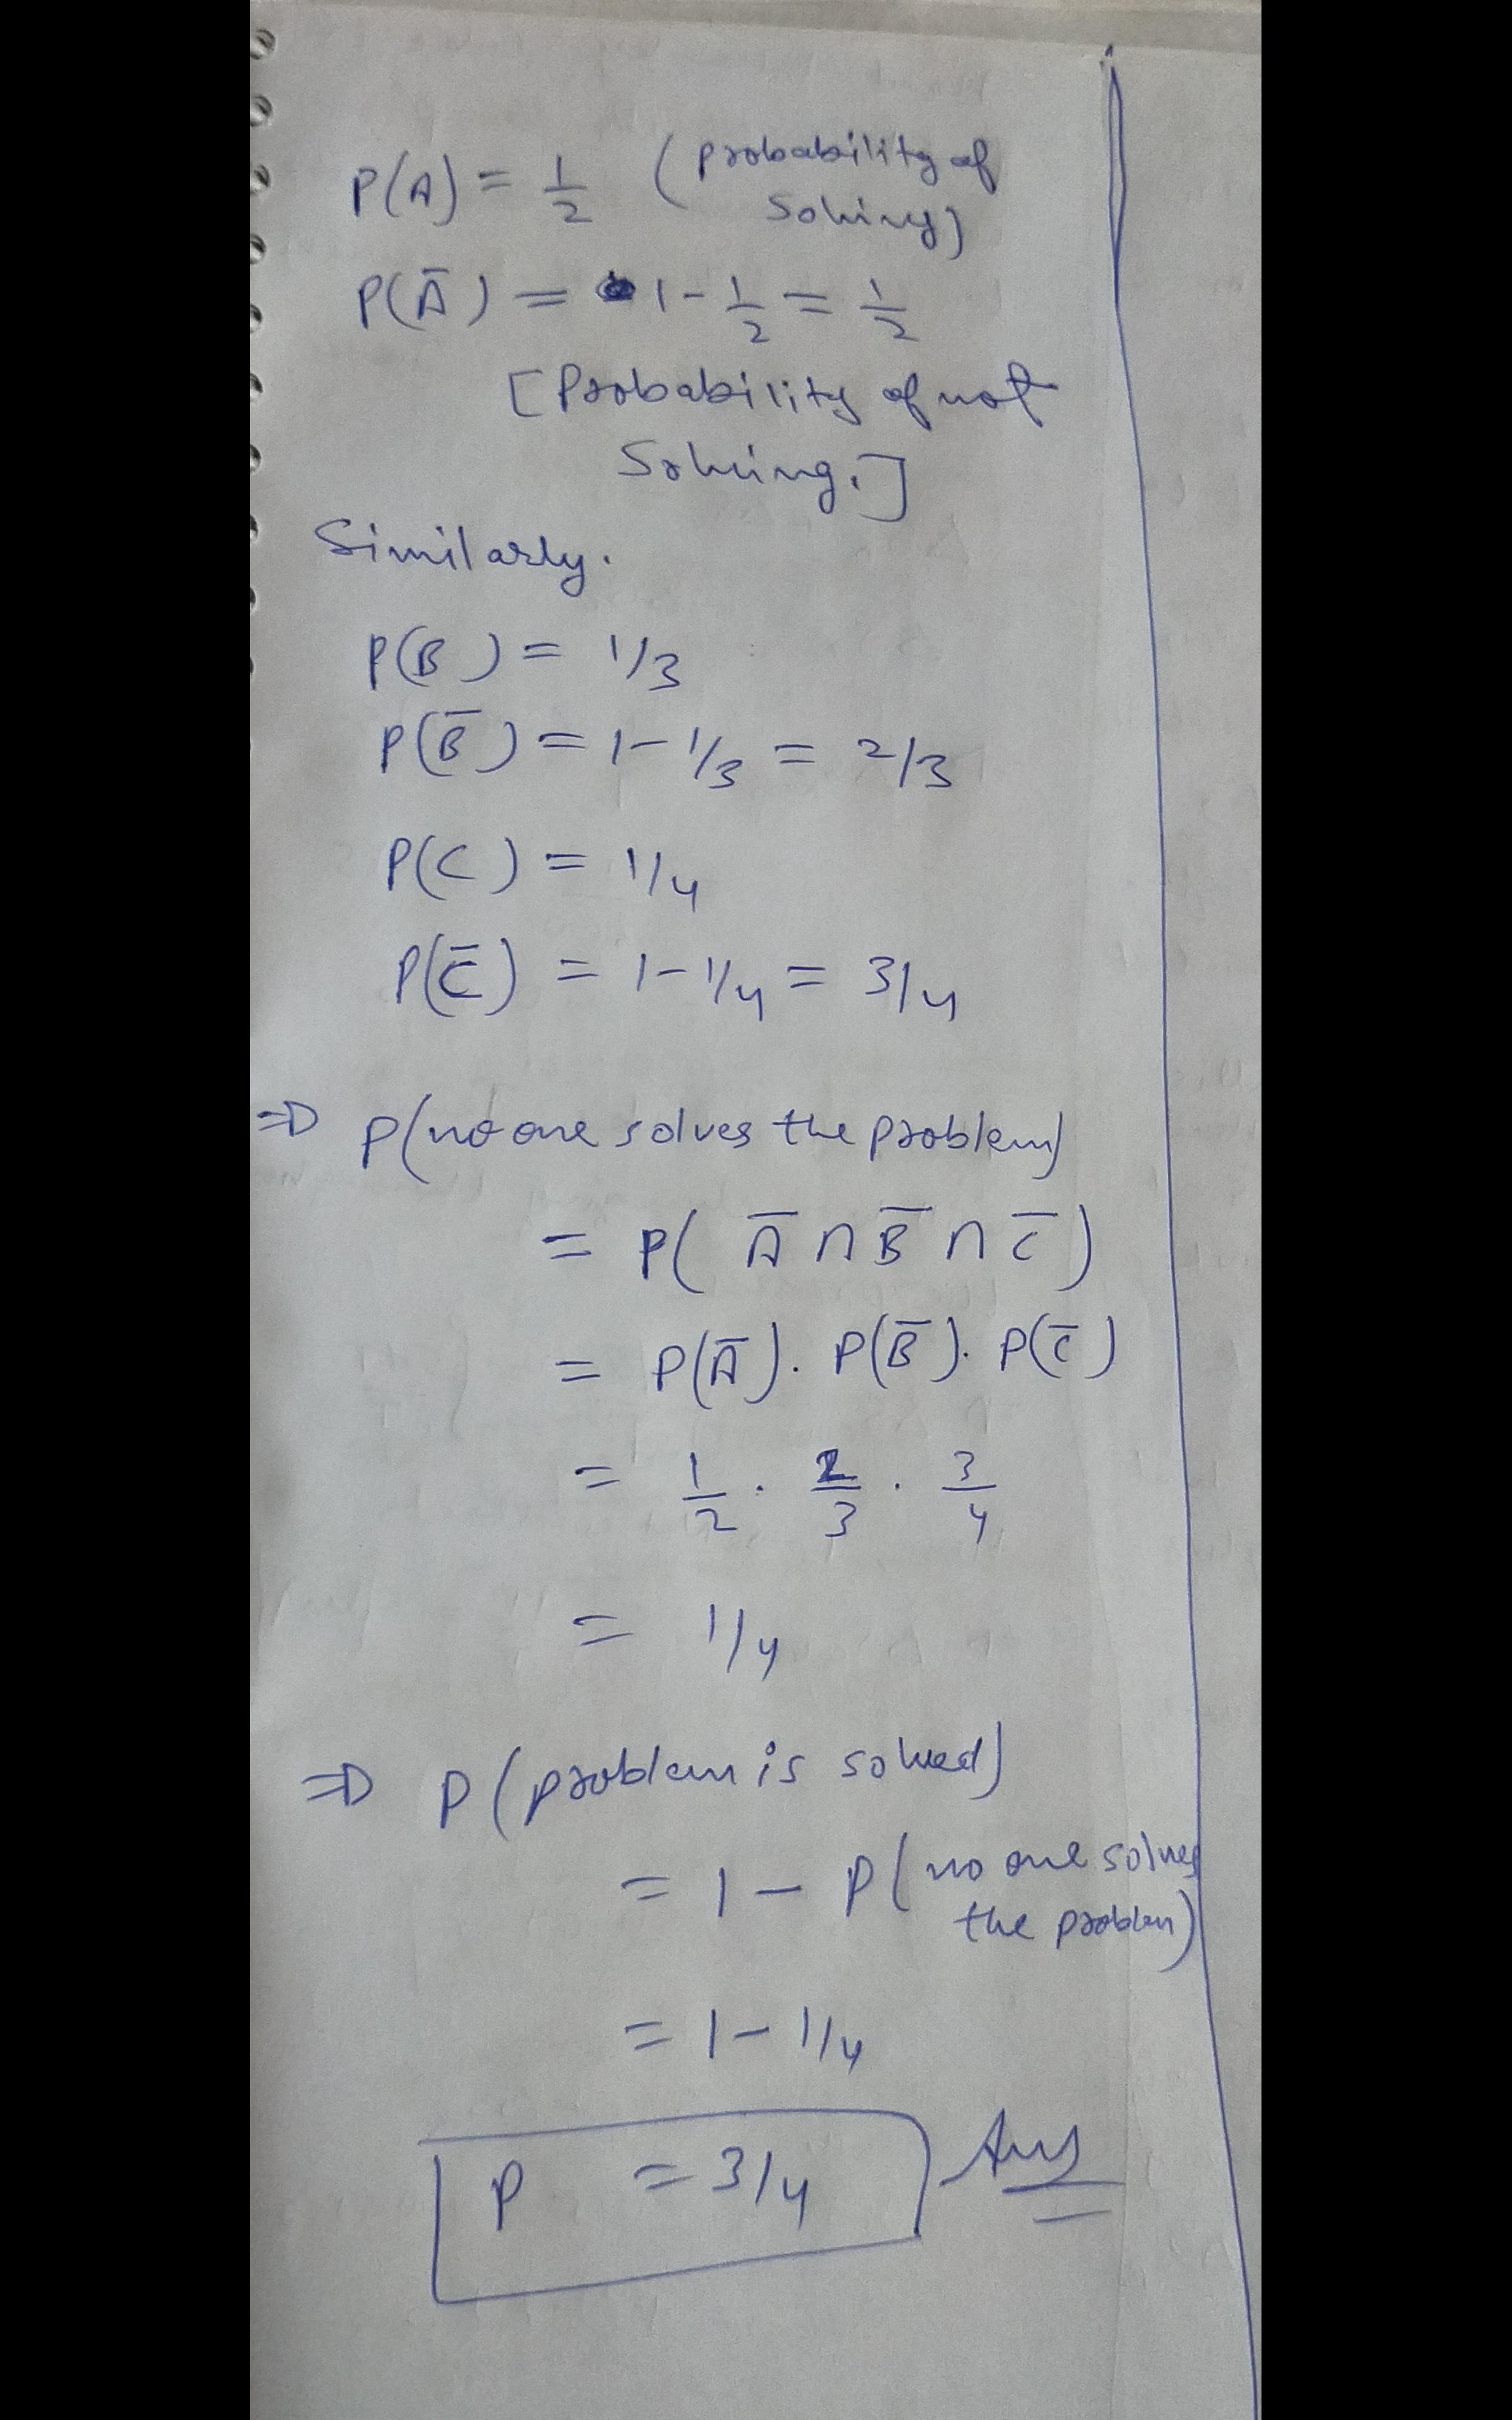 P(A) = 1/2 (probability of
solving)
P(Ā) = 1 - 1/2 = 1/2
[Probability of not
Solving.]
Similarly.
P(B) = 1/3
P(B̄) = 1 - 1/3 = 2/3
P(C) = 1/4
P(C̄) = 1 - 1/4 = 3/4
⇒ P(no one solves the problem)
= P( Ā ∩ B̄ ∩ C̄ )
= P(Ā). P(B̄). P(C̄)
= 1/2 . 2/3 . 3/4
= 1/4
⇒ P(problem is solved)
= 1 - P(no one solves
the problem)
= 1 - 1/4
P = 3/4 Ans